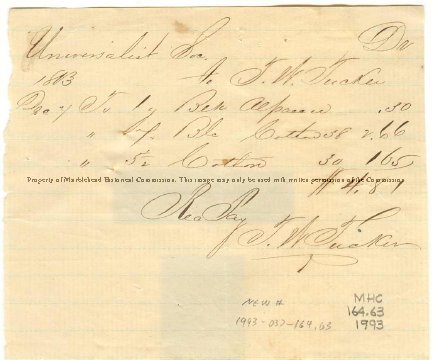 Universalist Soc. Dr
to T. W. Tucker
1863
To 1 y Blk Alpacca .30
" 7 y Blc Cotton 38 2.66
" 5½ Cotton 30 165
Property of Marblehead Historical Commission. This image may only be used with written permission of the Commission.
Rec Pay
T. W. Tucker
NEW #
1993-037-164.63
MHC
164.63
1993